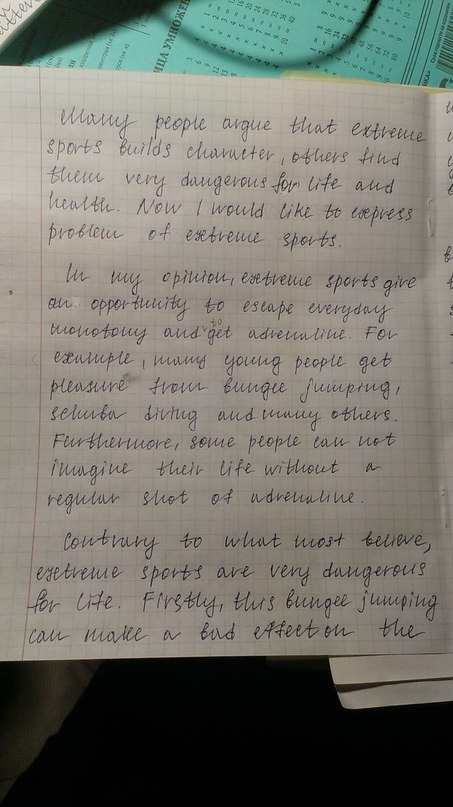 Many people argue that extreme
sports builds character, others find
them very dangerous for life and
health. Now I would like to express
problem of extreme sports.
In my opinion, extreme sports give
an opportunity to escape everyday
monotony and to get adrenaline. For
example, many young people get
pleasure from bungee jumping,
schuba diving and many others.
Furthermore, some people can not
imagine their life without a
regular shot of adrenaline.
Contrary to what most believe,
extreme sports are very dangerous
for life. Firstly, this bungee jumping
can make a bad effect on the